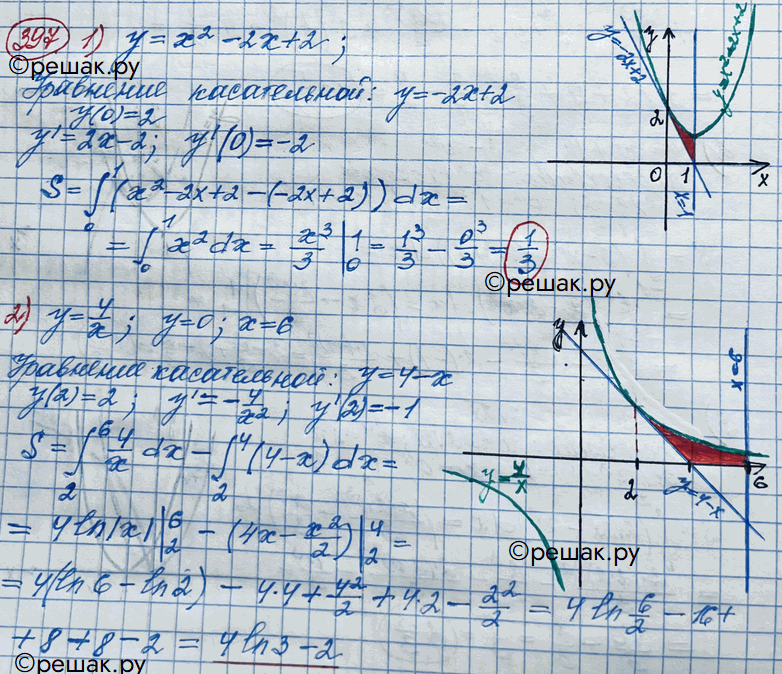 397 1) y = x² - 2x + 2 ;
©решак.ру
Уравнение касательной: y = -2x + 2
y(0) = 2
y' = 2x - 2 ; y'(0) = -2
S = ∫₀¹ (x² - 2x + 2 - (-2x + 2)) dx =
= ∫₀¹ x² dx = x³/3 |₀¹ = 1³/3 - 0³/3 = 1/3
©решак.ру
y = -2x+2
y
y = x² - 2x + 2
2
0 1 x
x = 1
2) y = 4/x ; y = 0 ; x = 6
Уравнение касательной: y = 4 - x
y(2) = 2 ; y' = -4/x² ; y'(2) = -1
S = ∫₂⁶ 4/x dx - ∫₂⁴ (4 - x) dx =
= 4 ln|x| |₂⁶ - (4x - x²/2) |₂⁴ =
= 4(ln 6 - ln 2) - 4·4 + 4²/2 + 4·2 - 2²/2 = 4 ln 6/2 - 16 +
+ 8 + 8 - 2 = 4 ln 3 - 2
©решак.ру
y
x = 6
y = 4/x
2
y = 4 - x
6
©решак.ру